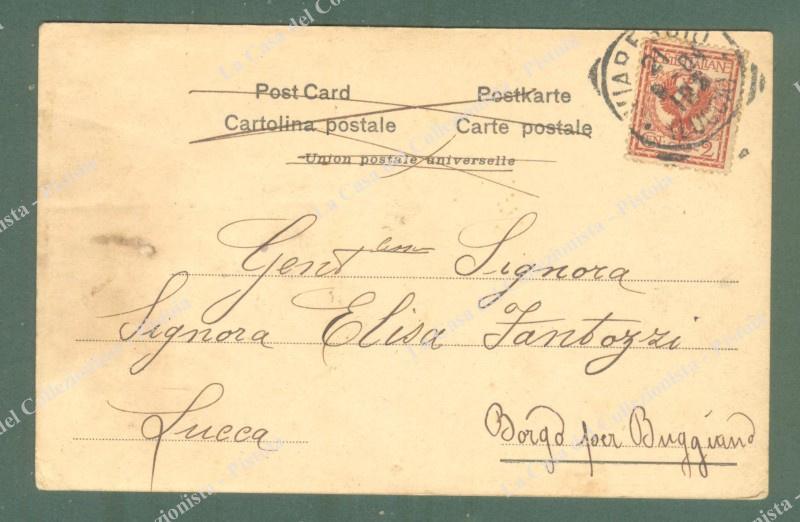 Post Card Postkarte
Cartolina postale Carte postale
Union postale universelle
VIAREGGIO
(LUCCA)
2
Gent.issma Signora
Signora Elisa Fantozzi
Lucca
Borgo per Buggiano
La Casa del Collezionista - Pistoia